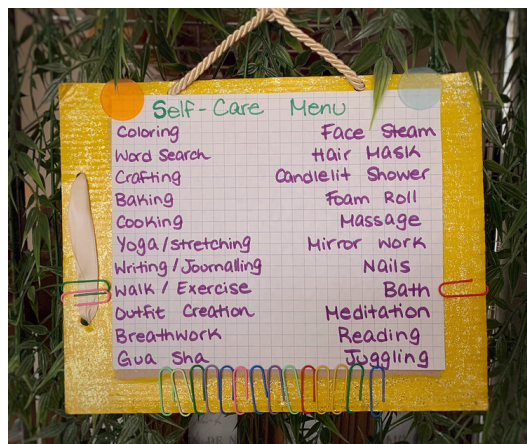 Self-Care Menu
Coloring
Word Search
Crafting
Baking
Cooking
Yoga/stretching
Writing/Journalling
Walk / Exercise
Outfit Creation
Breathwork
Gua Sha
Face Steam
Hair Mask
Candlelit Shower
Foam Roll
Massage
Mirror Work
Nails
Bath
Meditation
Reading
Juggling